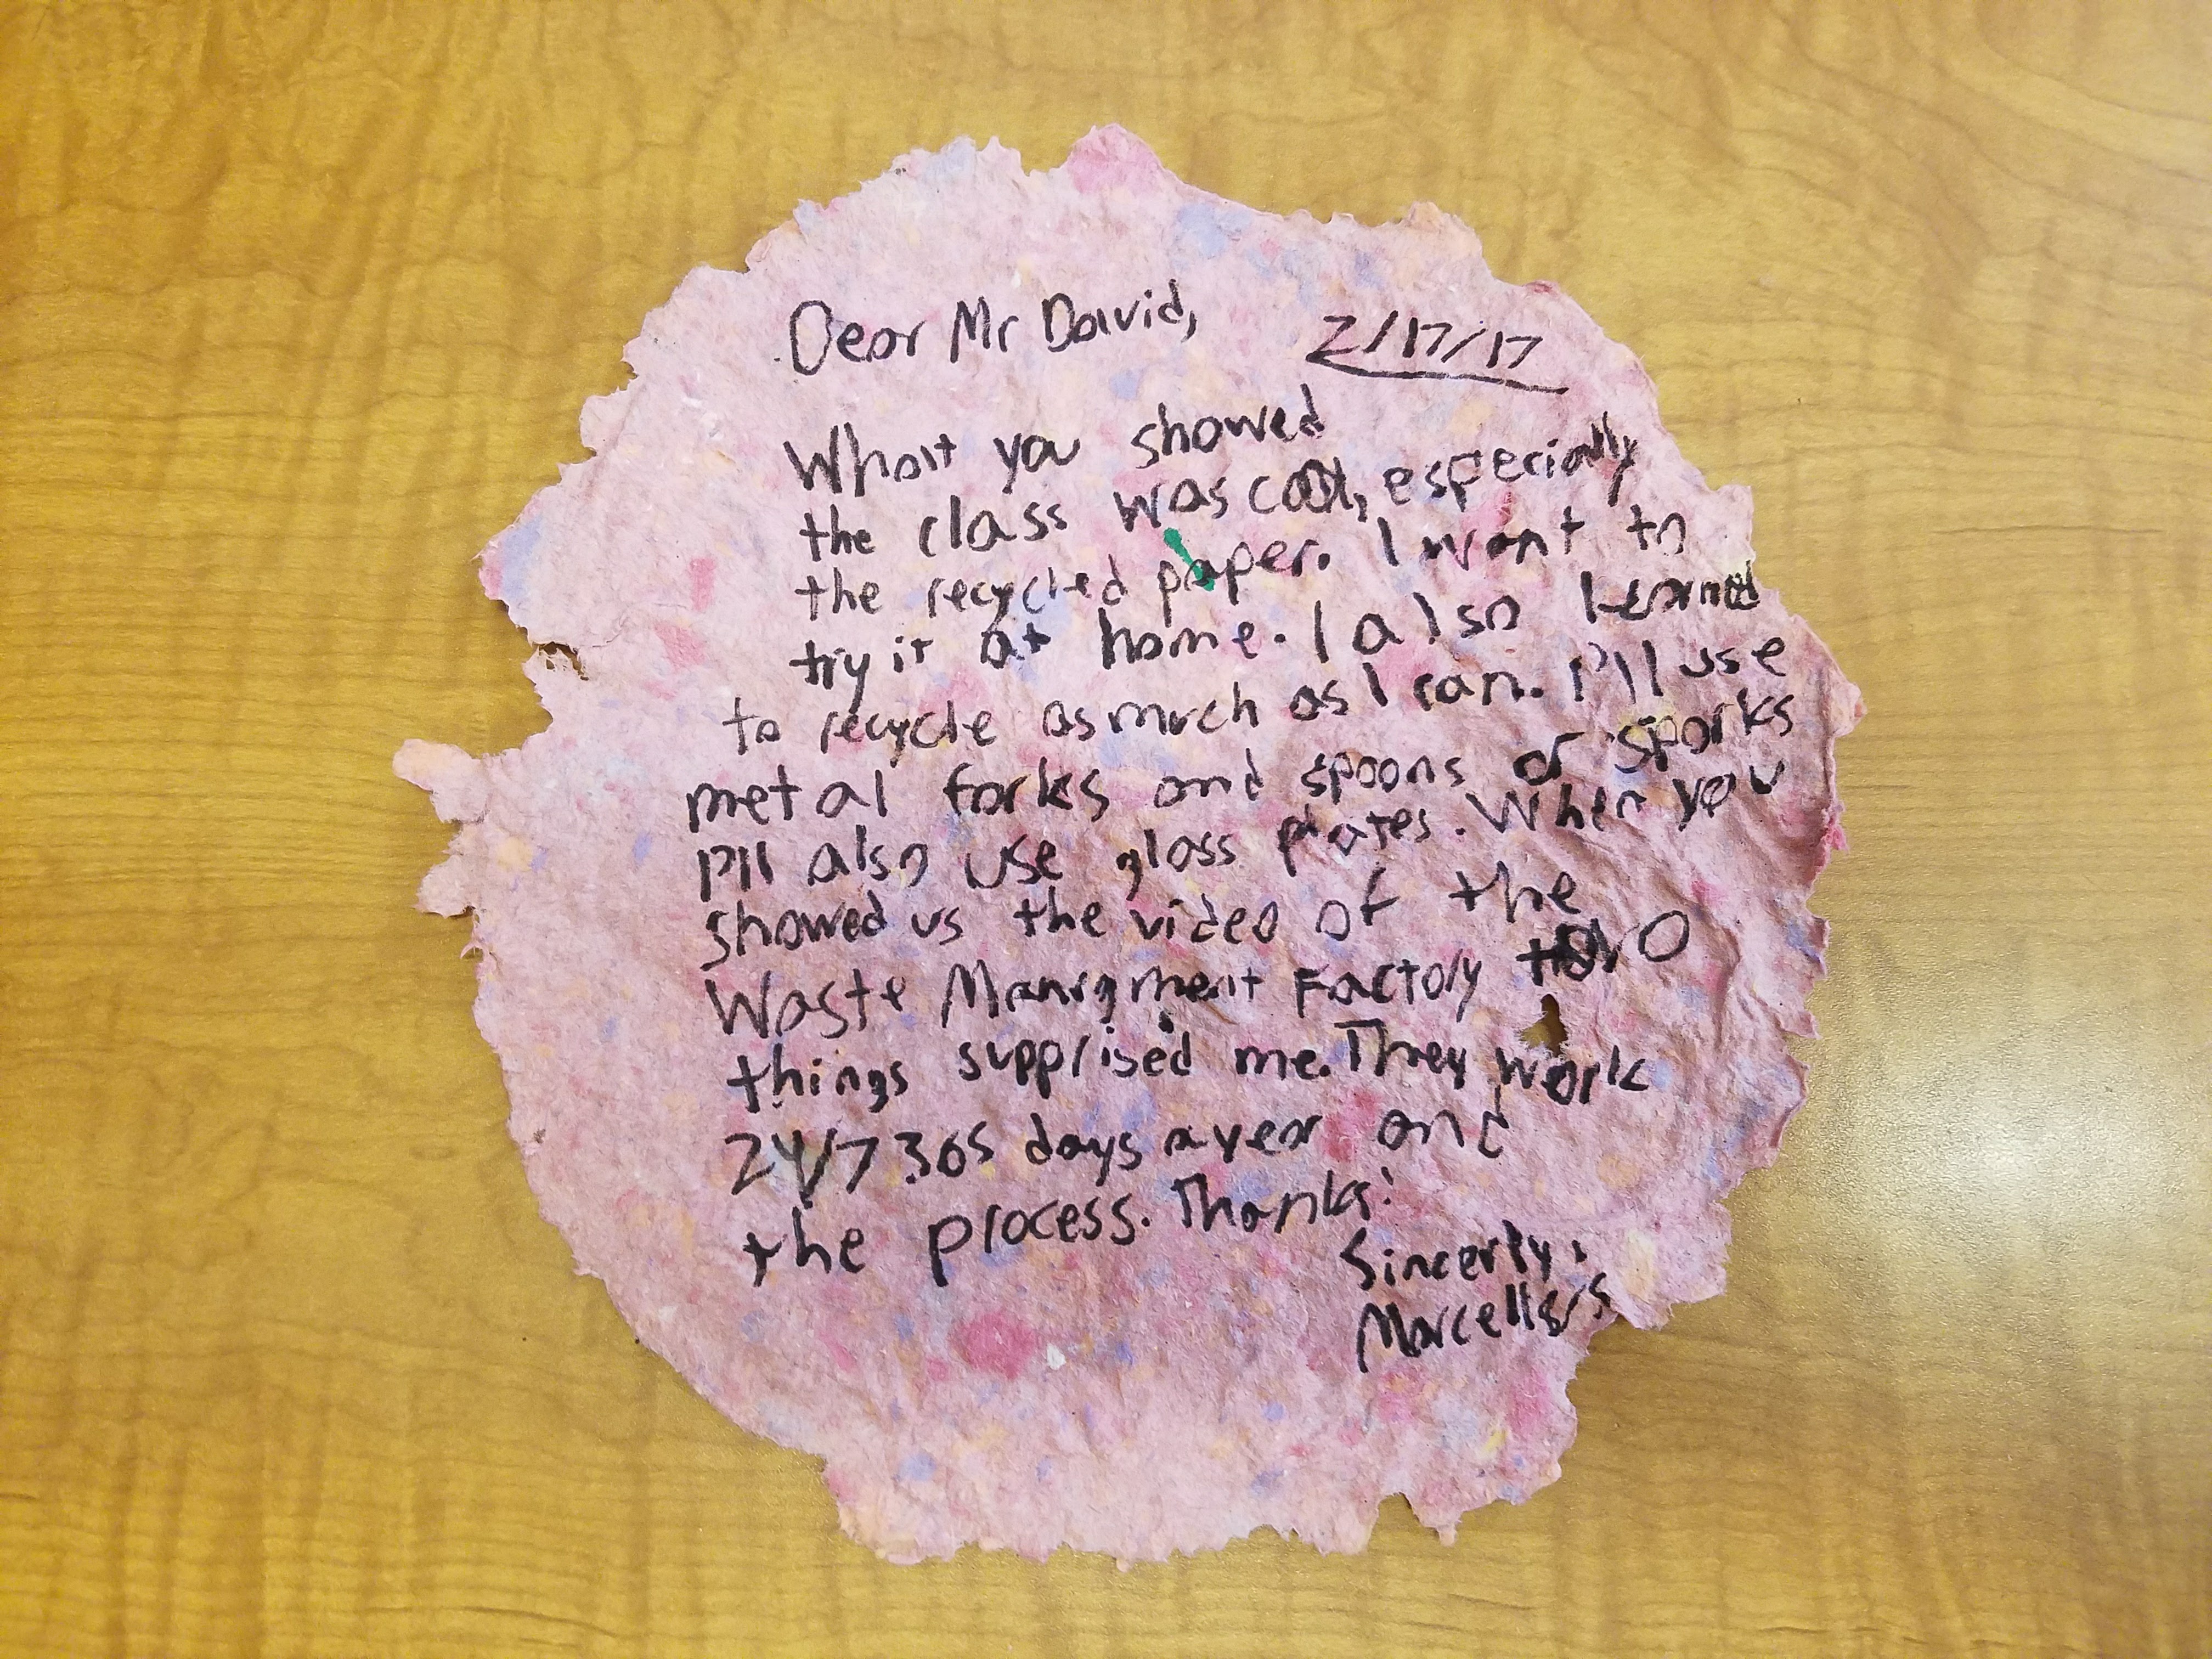 Dear Mr David, 2/17/17
What you showed
the class was cool, especially
the recycled paper. I want to
try it at home. I also learned
to recycle as much as I can. I'll use
metal forks and spoons or sporks
I'll also use glass plates. When you
showed us the video of the
Waste Manegment Factory two
things supprised me. They work
24/7 365 days a year and
the process. Thanks!
Sincerly,